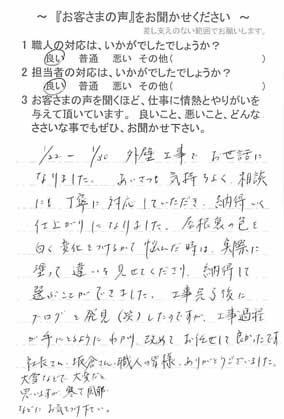 ～『お客さまの声』をお聞かせください ～
差し支えのない範囲でお願いします。
1 職人の対応は、いかがでしたでしょうか?
良い 普通 悪い その他( )
2 担当者の対応は、いかがでしたでしょうか?
良い 普通 悪い その他( )
3 お客さまの声を聞くほど、仕事に情熱とやりがいを
与えて頂いています。 良いこと、悪いこと、どんな
ささいな事でもぜひ、お聞かせ下さい。
1/22 ー 1/30 外壁工事で お世話に
なりました。 あいさつも 気持ちよく、相談
にも 丁寧に 対応していただき、納得いく
仕上がりになりました。 屋根裏の色を
白く 変化をつけるかで 悩んだ時は、実際に
塗って 違いを 見せてくださり、 納得して
選ぶことができました。 工事完了後に
ブログを 発見(笑)したのですが、工事過程
が 手にとるように わかり、改めて お任せして 良かったです。
社長さん、坂倉さん、職人の皆様、ありがとうございました。
大雪などで 大変だと
思いますが、寒で 風邪
などに お気をつけ下さい。